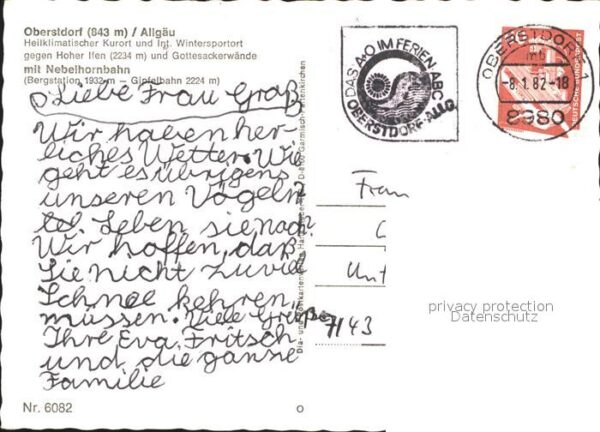 Oberstdorf (843 m) / Allgäu
Heilklimatischer Kurort und Int. Wintersportort
gegen Hoher Ifen (2234 m) und Gottesackerwände
mit Nebelhornbahn
(Bergstation 1932 m – Gipfelbahn 2224 m)
Liebe Frau Groß
Wir haben her-
liches Wetter. Wie
geht es übrigens
unseren Vögeln?
Leben sie noch?
Wir hoffen, daß
Sie nicht zuviel
Schnee kehren
müssen. Viele Grüße
Ihre Eva Fritsch
und die ganse
Familie
Nr. 6082
DAS A-O IM FERIEN ABC
OBERSTDORF-Allg
OBERSTDORF 1
-8.1.82-18
8980
DEUTSCHE BUNDESPOST
Frau
Unt
7143
privacy protection
Datenschutz